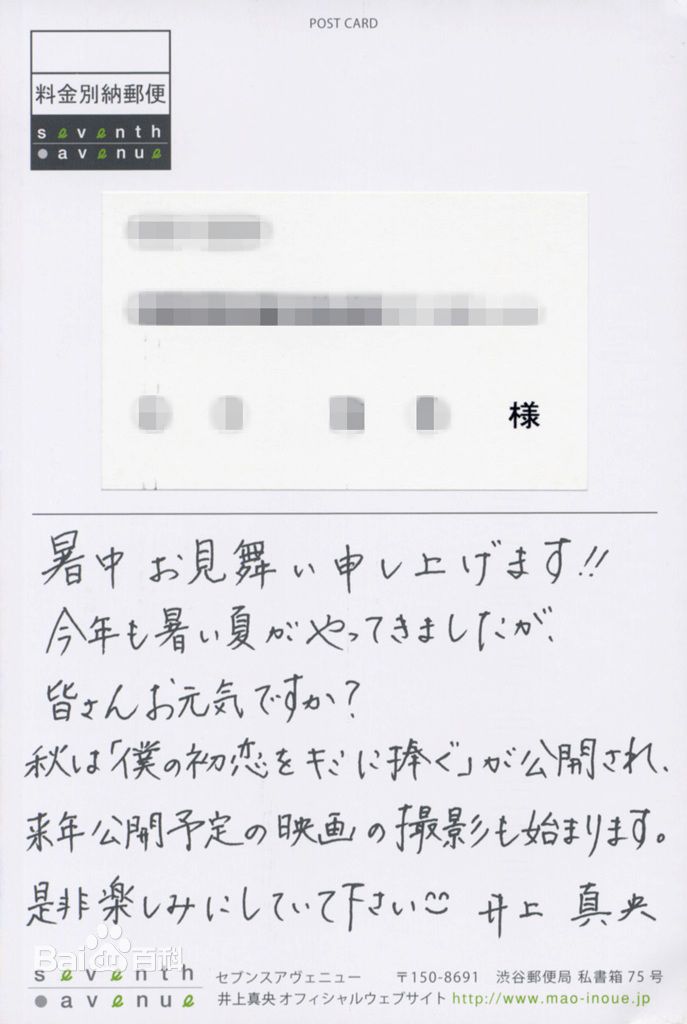 POST CARD
料金別納郵便
seventh
avenue
様
暑中お見舞い申し上げます!!
今年も暑い夏がやってきましたが、
皆さんお元気ですか?
秋は「僕の初恋をキミに捧ぐ」が公開され、
来年公開予定の映画の撮影も始まります。
是非楽しみにしていて下さい 井上 真央
Bai百科
seventh
avenue
セブンスアヴェニュー 〒150-8691 渋谷郵便局 私書箱 75 号
井上真央 オフィシャルウェブサイト http://www.mao-inoue.jp